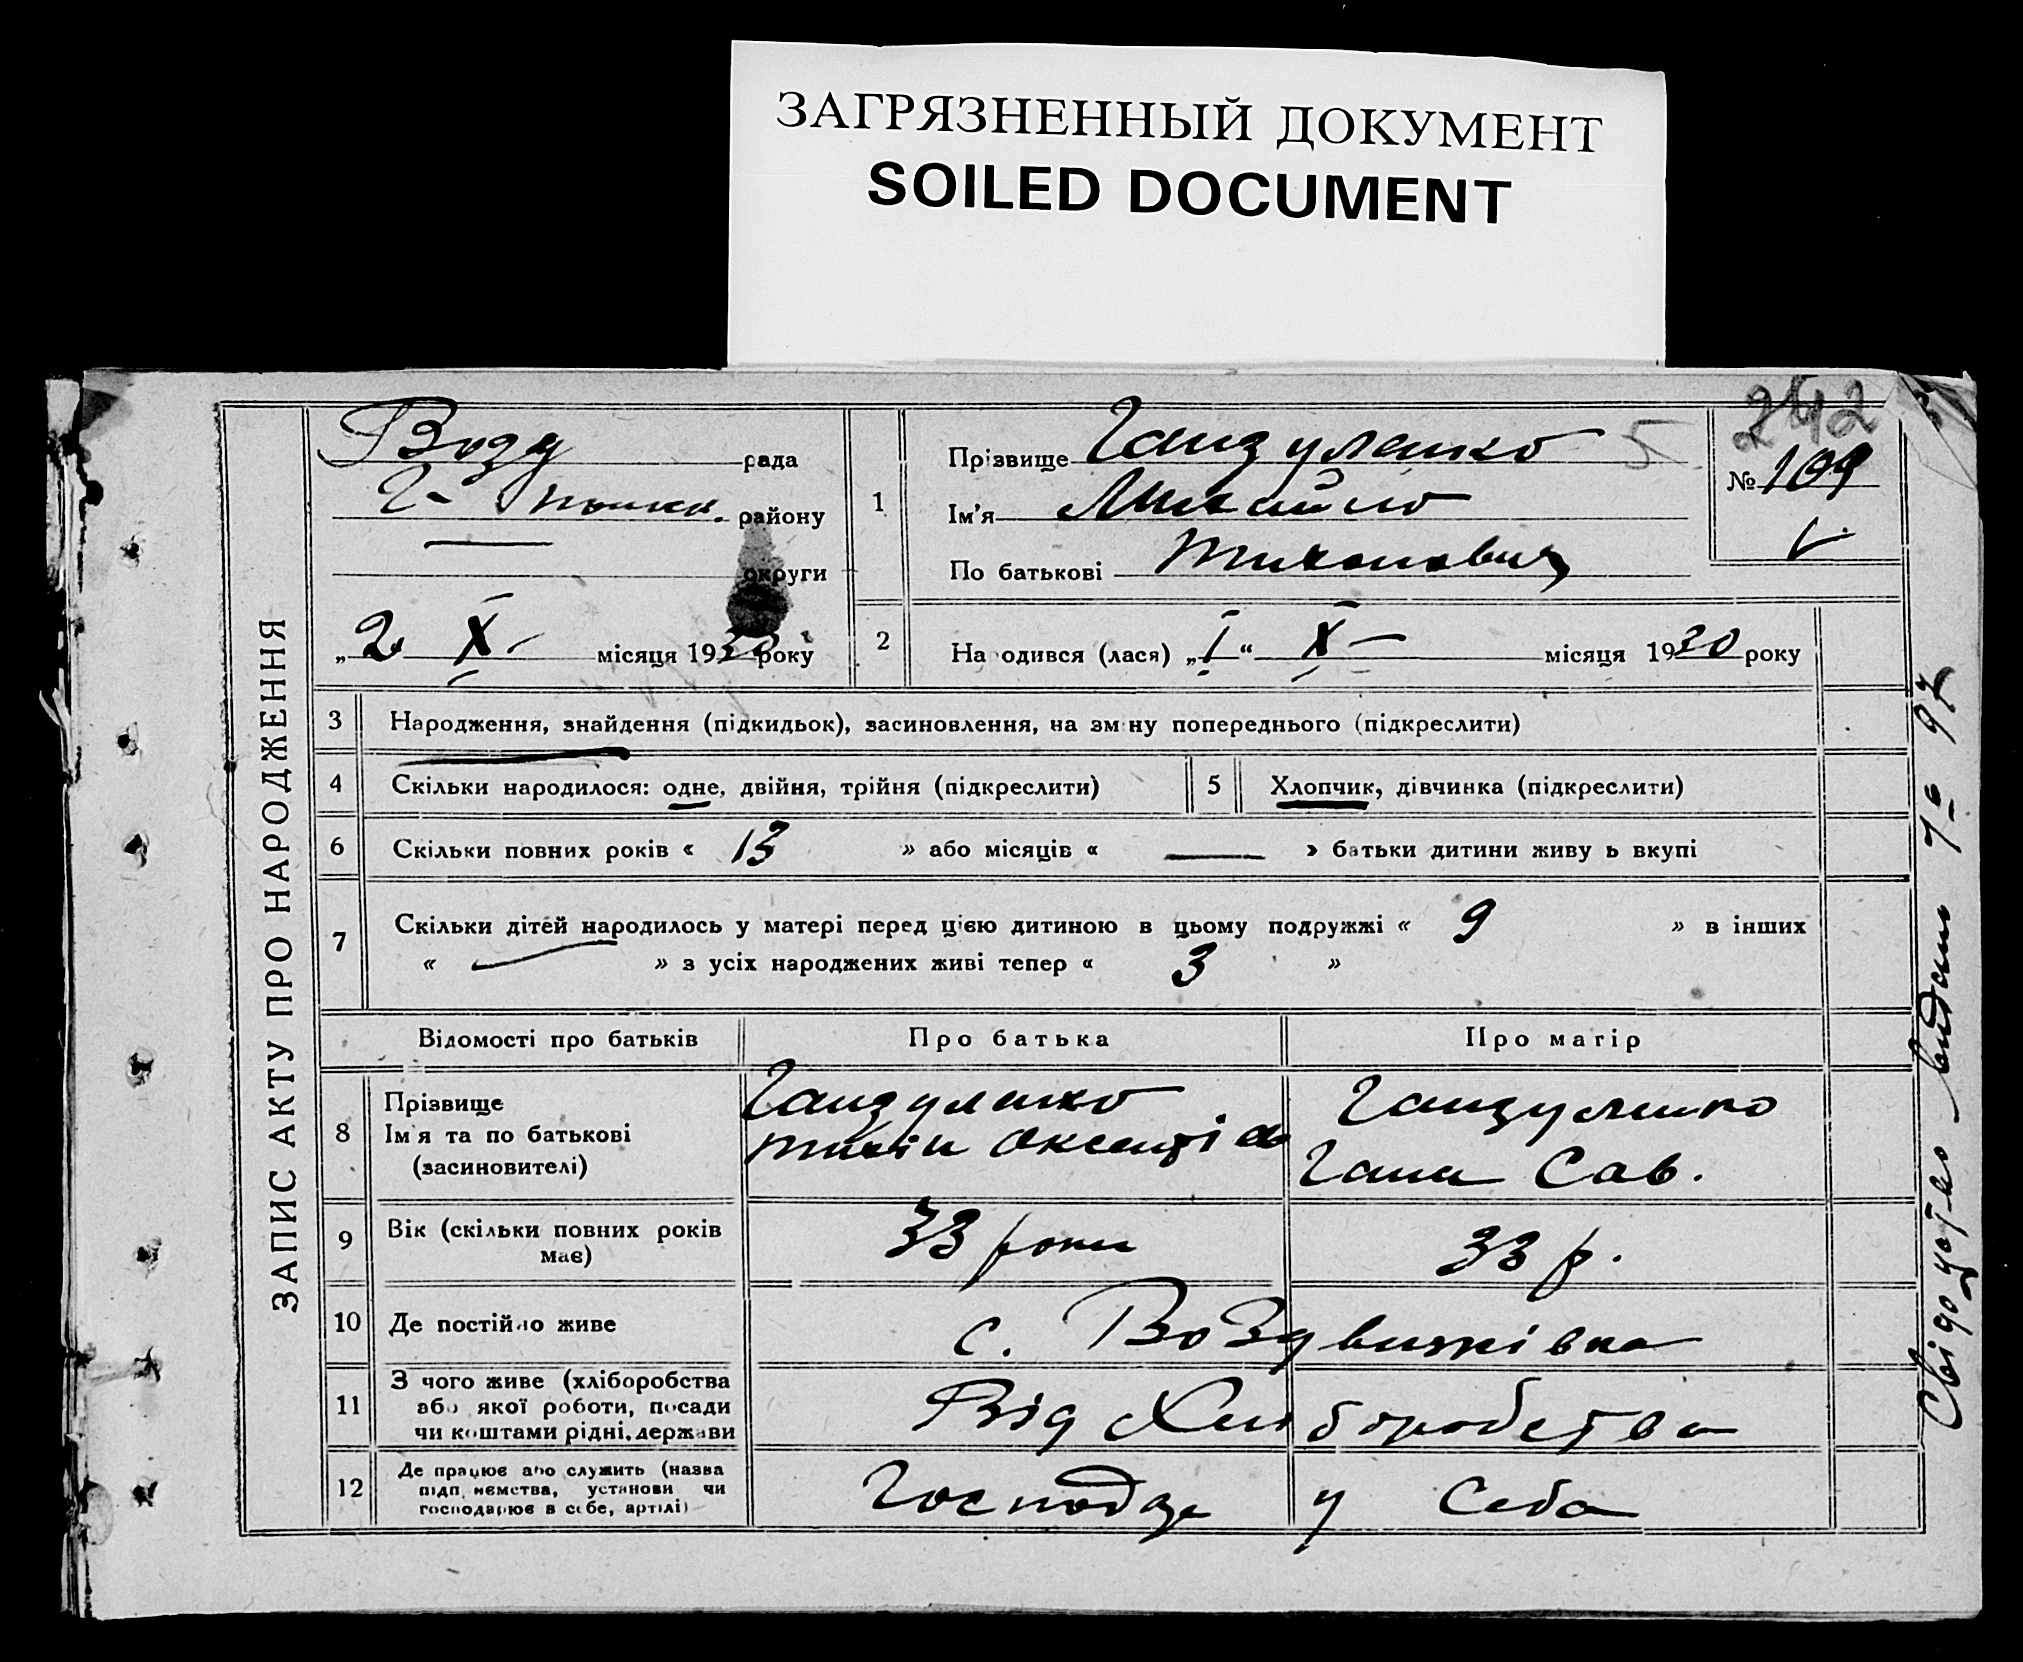 ЗАГРЯЗНЕННЫЙ ДОКУМЕНТ
SOILED DOCUMENT
242
ЗАПИС АКТУ ПРО НАРОДЖЕННЯ
Возд рада
району
округи
„2 X місяця 1930 року
1
Прізвище Гандуленко 5
Ім'я Михайло
По батькові Тихонович
№ 109
2 Народився (лася) „1“ X місяця 1930 року
3 Народження, знайдення (підкидьок), засиновлення, на зміну попереднього (підкреслити)
4 Скільки народилося: одне, двійня, трійня (підкреслити)
5 Хлопчик, дівчинка (підкреслити)
6 Скільки повних років « 13 » або місяців « — » батьки дитини живуть вкупі
7 Скільки дітей народилось у матері перед цією дитиною в цьому подружжі « 9 » в інших
« — » з усіх народжених живі тепер « 3 »
Відомості про батьків Про батька Про матір
8 Прізвище
Ім'я та по батькові
(засиновителі)
Гандуленко
Тихін Оксенті
Гандуленко
Гана Сав.
9 Вік (скільки повних років
має)
33 роки 33 р.
10 Де постійно живе с. Воздвижівка
11 З чого живе (хліборобства
або якої роботи, посади
чи коштами рідні, держави
Від Хліборобства
12 Де працює або служить (назва
підприємства, установи чи
господарює в себе, артілі)
Господар у Себе
Свідоцтво видан 7 97